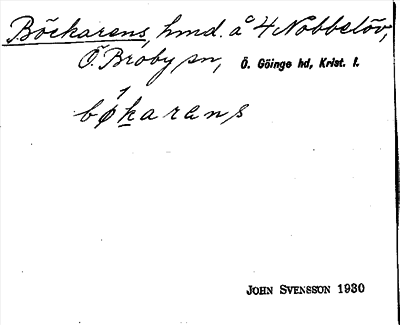 Böckarens, hmd. å 4 Nobbelöv,
Ö. Broby sn, Ö. Göinge hd, Krist. l.
bǿkarens
JOHN SVENSSON 1930